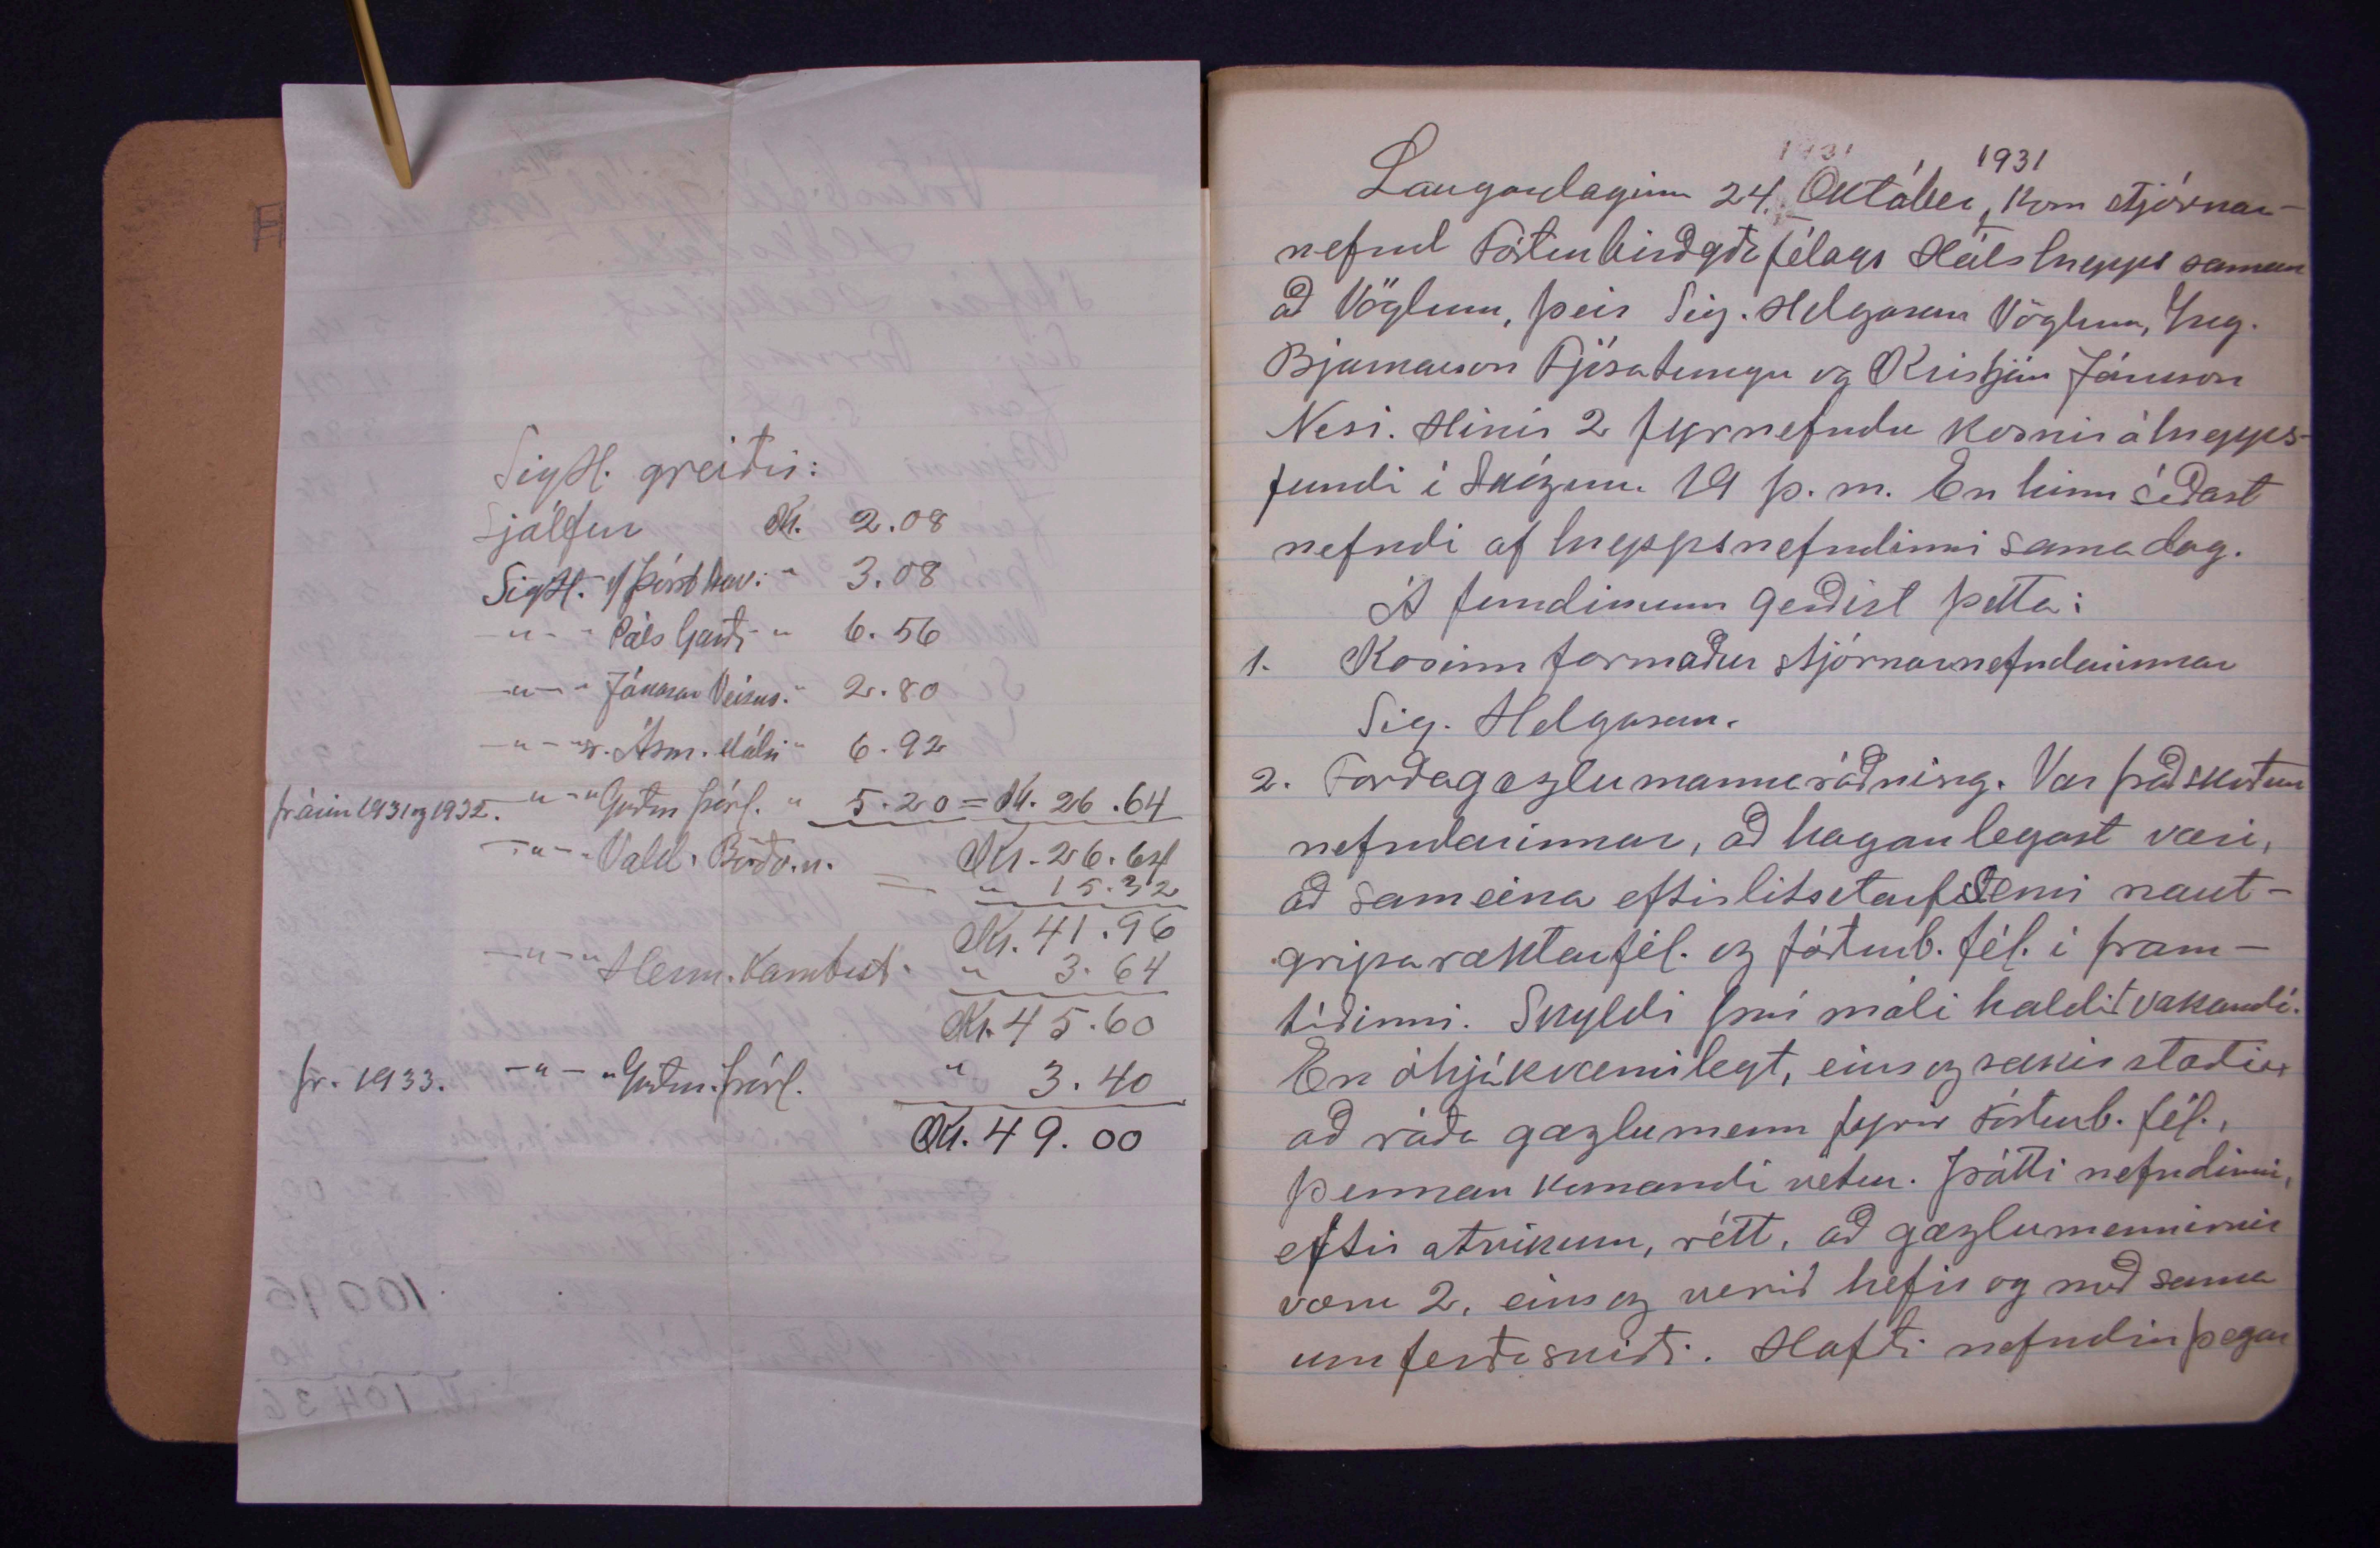 SigH. greiðir:
Sjálfur Kr. 2.08
SigH. f/ " 3.08
-"- " Páls Garði " 6.56
-"- " Jónasar Veisus. " 2.80
-"- " Ásm. Hálsi " 6.92
frá árin 1931 og 1932. -"- " Guðm Þórl. " 5.20 = Kr. 26.64
-"- " Vald. Böðv.n. = Kr. 26.64
" 15.32
Kr. 41.96
-"- " Herm. Kambsst. " 3.64
Kr. 45.60
fr. 1933. -"- " Guðm. Þórl. " 3.40
Kr. 49.00
1931 1931
Laugardaginn 24. Október, kom stjórnar-
nefnd Fóðurbirgðafélags Hálshrepps saman
að Vöglum, þeir Sig. Helgason Vöglum, Ing.
Bjarnarson Fjósatungu og Kristján Jónsson
Nesi. Hinir 2 fyrnefndu kosnir á hrepps-
fundi í Skógum 19 þ.m. En hinn síðast
nefndi af hreppsnefndinni sama dag.
Á fundinum gerðist þetta:
1. Kosinn formaður stjórnarnefndarinnar
Sig. Helgason.
2. Forðagæzlumannaráðning. Var það skoðun
nefndarinnar, að haganlegast væri,
að sameina eftirlitsstarfsemi naut-
griparæktarfél. og fóðurb. fél. í fram-
tíðinni. Skyldi því máli haldið vakandi.
En óhjákvæmilegt, eins og sakir standa
að ráða gæzlumenn fyrir Fóðurb. fél.,
þennan komandi vetur. Þótti nefndinni,
eftir atvikum, rétt, að gæzlumennirnir
væru 2, eins og verið hefir og með sama
umferðasniði. Hafði nefndin þegar